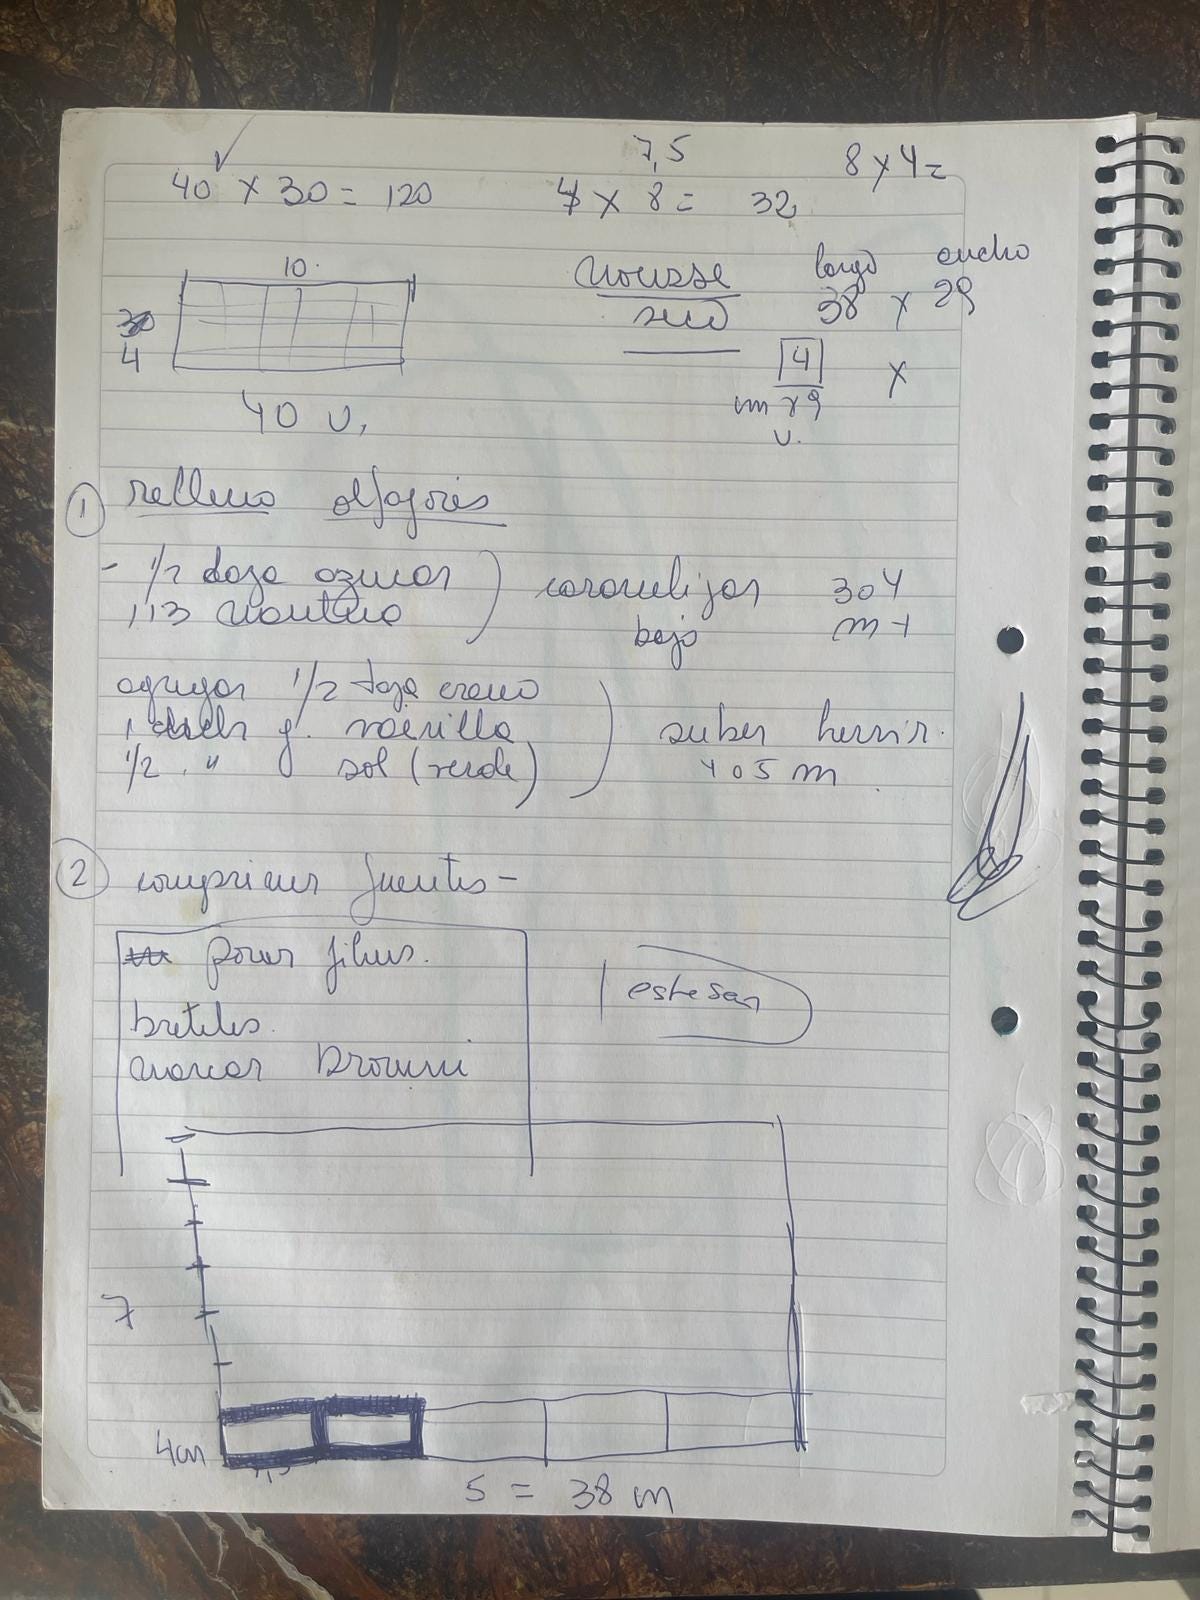 40 x 30 = 120
7,5
4 x 8 = 32
8 x 4 =
10.
30
4
40 U,
mousse
seco
largo ancho
38 x 29
4 x
cm x 9
U.
1 relleno alfajores
- 1/2 taza azucar
113 manteca
caramelizar
bajo
3 o 4
m +
agregar 1/2 taza crema
1 g. vainilla
1/2 " sal (verde)
suber hervir.
4 o 5 m
2 comprimer fuentes -
poner filus.
breteles.
marcar Brownie
estesan
7
4cm
7,5
5 = 38 m